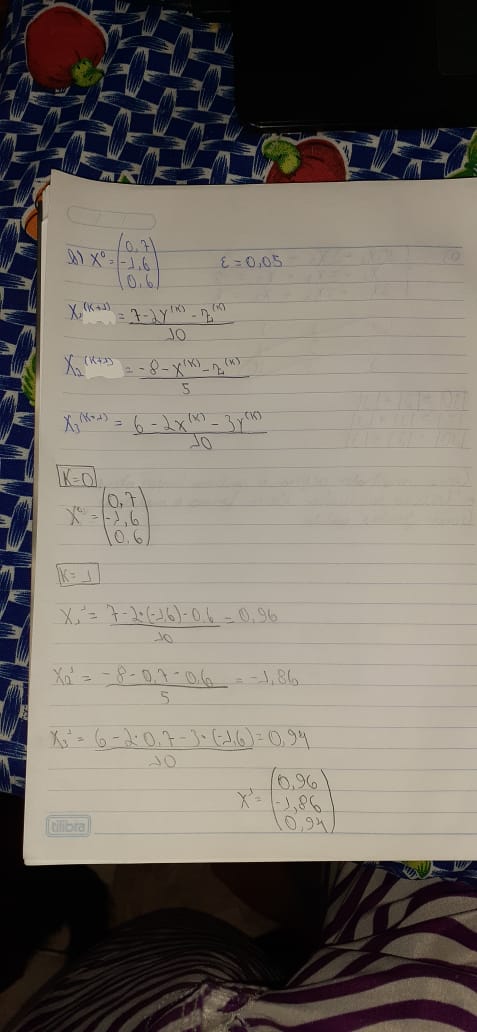 b) X⁰ = (0,7 -1,6 0,6) ε = 0,05
X₁⁽ᴷ⁺¹⁾ = 7 - 2Y⁽ᴷ⁾ - Z⁽ᴷ⁾ / 10
X₂⁽ᴷ⁺¹⁾ = -8 - X⁽ᴷ⁾ - Z⁽ᴷ⁾ / 5
X₃⁽ᴷ⁺¹⁾ = 6 - 2X⁽ᴷ⁾ - 3Y⁽ᴷ⁾ / 10
K=0
X⁰ = (0,7 -1,6 0,6)
K=1
X₁¹ = 7 - 2·(-1,6) - 0,6 / 10 = 0,96
X₂¹ = -8 - 0,7 - 0,6 / 5 = -1,86
X₃¹ = 6 - 2·0,7 - 3·(-1,6) / 10 = 0,94
X¹ = (0,96 -1,86 0,94)
tilibra